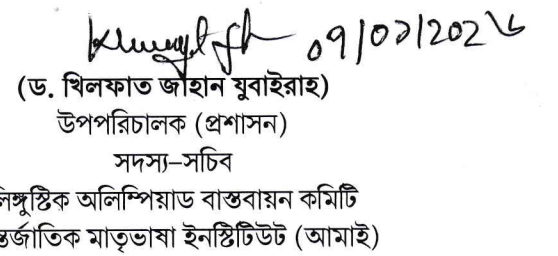 (ড. খিলফাত জাহান যুবাইরাহ)
উপপরিচালক (প্রশাসন)
সদস্য–সচিব
লিঙ্গুস্টিক অলিম্পিয়াড বাস্তবায়ন কমিটি
র্জাতিক মাতৃভাষা ইনস্টিটিউট (আমাই)